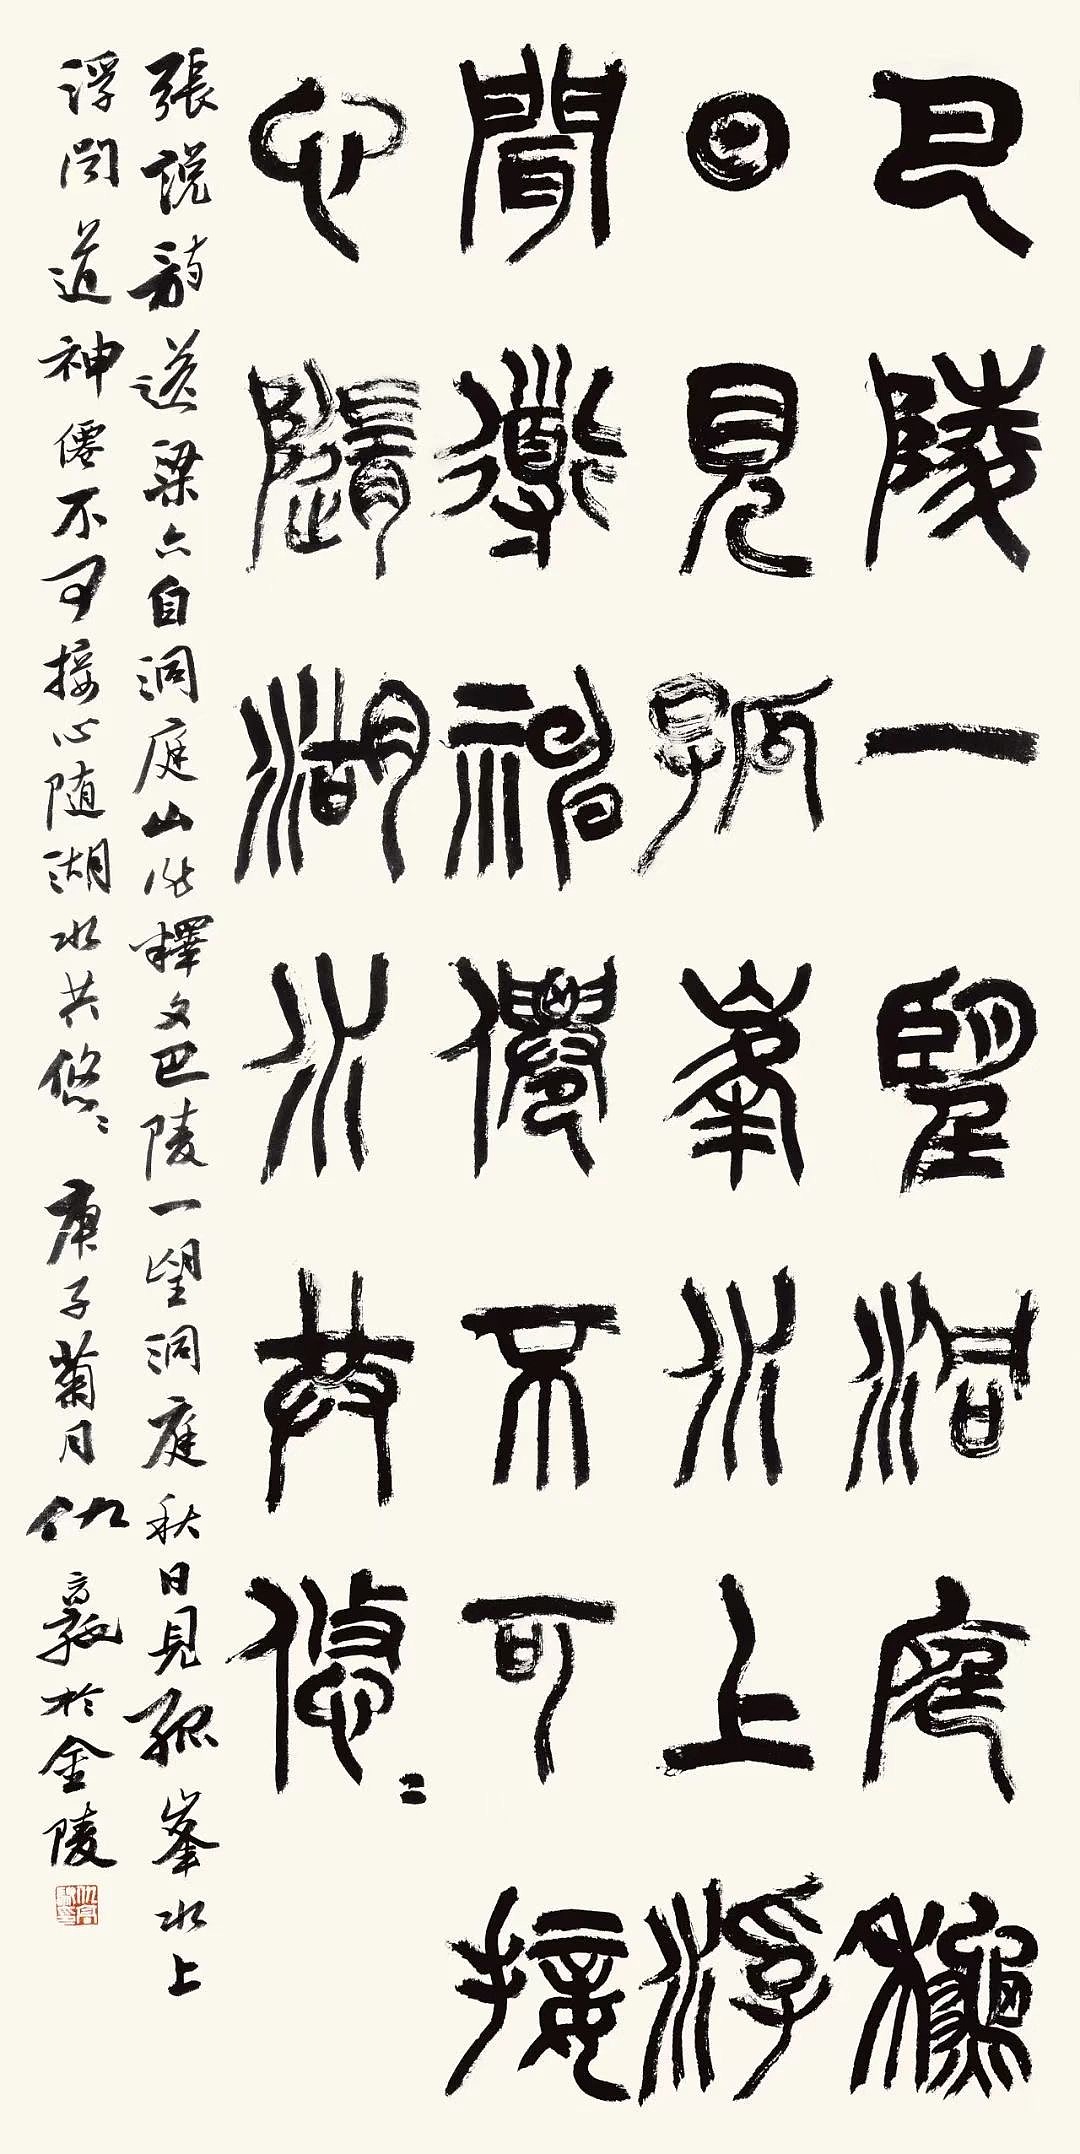 巴陵一望洞庭秋
日見孤峯水上浮
聞道神僊不可接
心隨湖水共悠〻
張說詩送梁六自洞庭山作釋文巴陵一望洞庭秋日見孤峯水上
浮闻道神僊不可接心随湖水共悠〻庚子菊月仇高驰於金陵